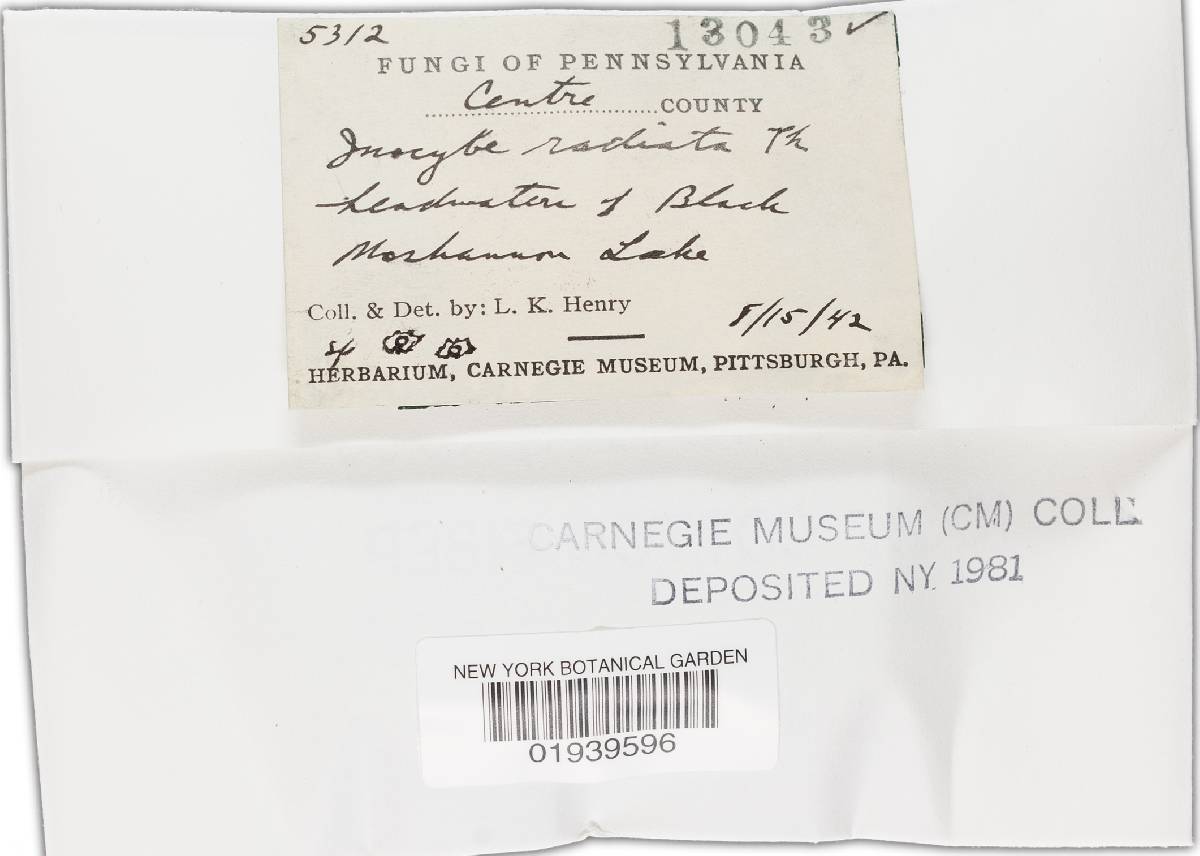 5312 13043 ✓
FUNGI OF PENNSYLVANIA
Centre COUNTY
Inocybe radiata Pk
headwaters of Black
Moshannon Lake
Coll. & Det. by: L. K. Henry 8/15/42
HERBARIUM, CARNEGIE MUSEUM, PITTSBURGH, PA.
CARNEGIE MUSEUM (CM) COLL.
DEPOSITED NY. 1981
NEW YORK BOTANICAL GARDEN
01939596